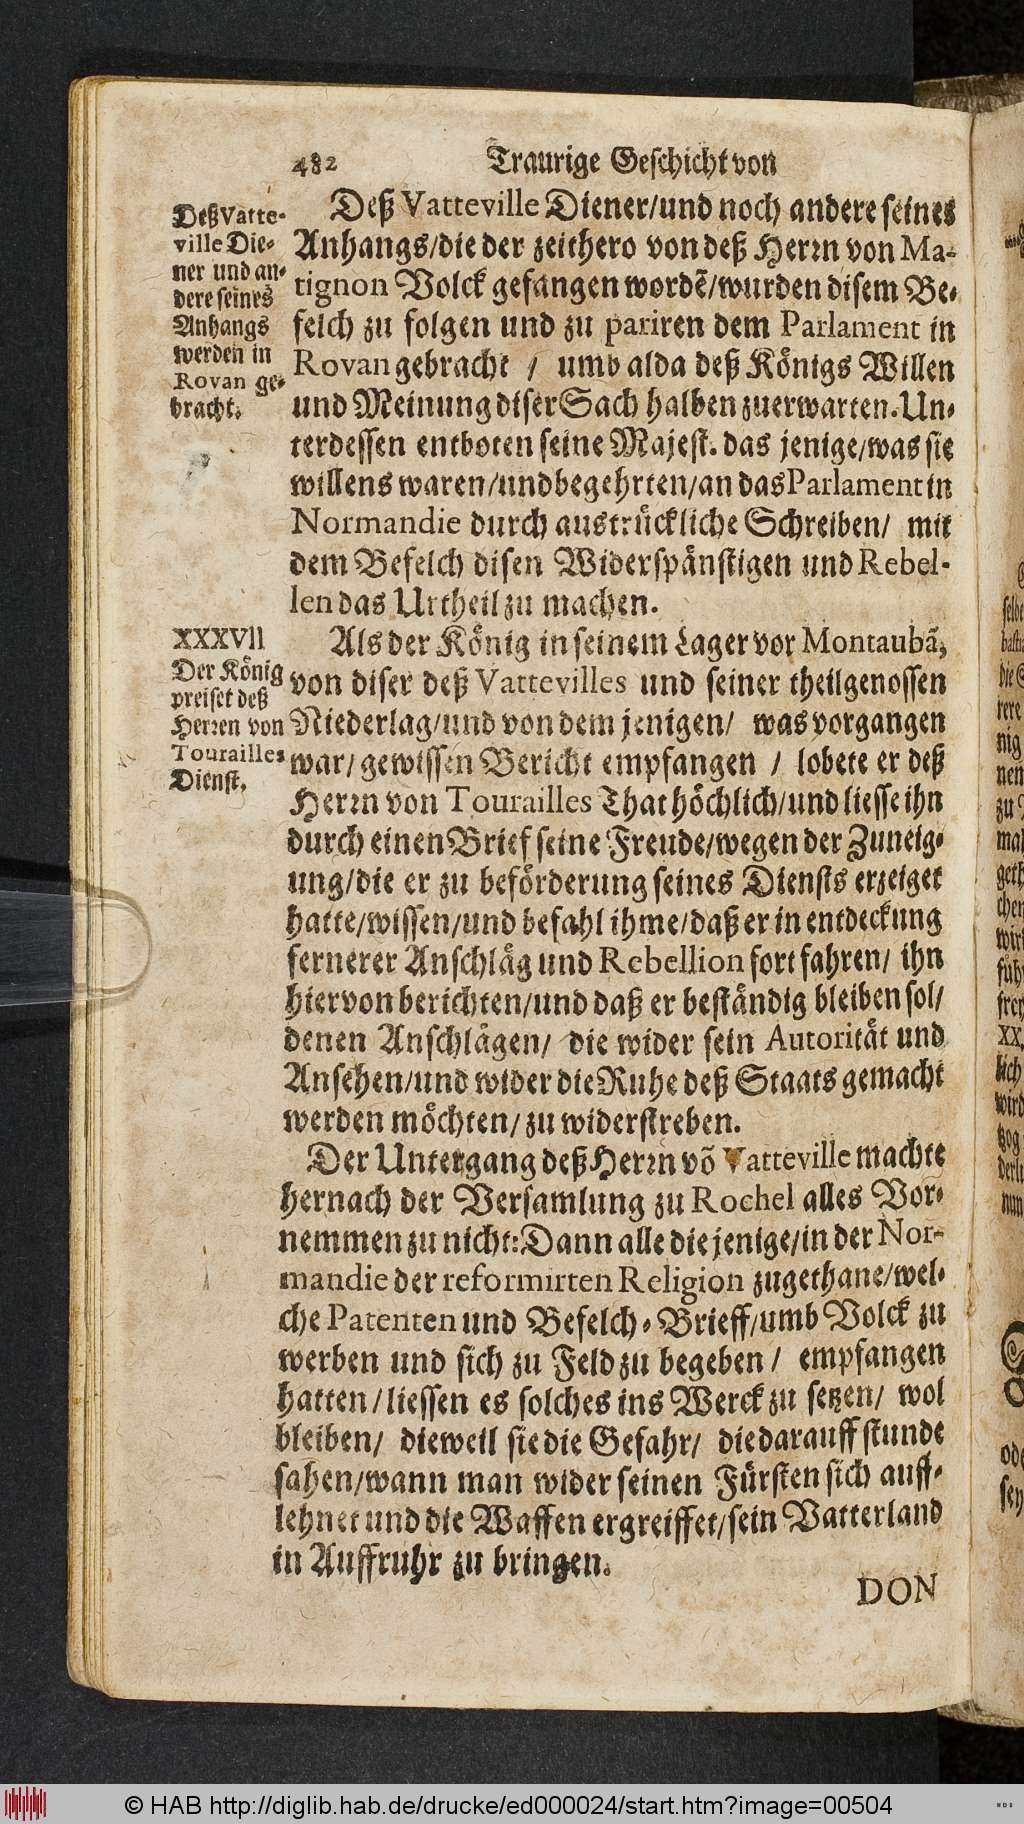 482 Traurige Geschicht von
Deß Vatte-
ville Die-
ner und an-
dere seines
Anhangs
werden in
Rovan ge-
bracht.
Deß Vatteville Diener/und noch andere seines
Anhangs/die der zeithero von deß Herrn von Ma-
tignon Volck gefangen wordẽ/wurden disem Be-
felch zu folgen und zu pariren dem Parlament in
Rovan gebracht / umb alda deß Königs Willen
und Meinung diser Sach halben zuerwarten. Un-
terdessen entboten seine Majest. das jenige/was sie
willens waren/und begehrten/an das Parlament in
Normandie durch austrückliche Schreiben/ mit
dem Befelch disen Widerspänstigen und Rebel-
len das Urtheil zu machen.
XXXVII
Der König
preiset deß
Herren von
Tourailles
Dienst.
Als der König in seinem Lager vor Montaubã,
von diser deß Vattevilles und seiner theilgenossen
Niederlag/und von dem jenigen/ was vorgangen
war/ gewissen Bericht empfangen / lobete er deß
Herrn von Tourailles That höchlich/und liesse ihn
durch einen Brief seine Freude/wegen der Zuneig-
ung/die er zu beförderung seines Diensts erzeiget
hatte/wissen/und befahl ihme/daß er in entdeckung
fernerer Anschläg und Rebellion fortfahren/ ihn
hiervon berichten/und daß er beständig bleiben sol/
denen Anschlägen/ die wider sein Autorität und
Ansehen/und wider die Ruhe deß Staats gemacht
werden möchten/ zu widerstreben.
Der Untergang deß Herrn võ Vatteville machte
hernach der Versamlung zu Rochel alles Vor-
nemmen zu nicht: Dann alle die jenige/in der Nor-
mandie der reformirten Religion zugethane/wel-
che Patenten und Befelch-Brieff/umb Volck zu
werben und sich zu Feld zu begeben / empfangen
hatten/liessen es solches ins Werck zu setzen/ wol
bleiben/ dieweil sie die Gefahr/ die darauff stunde
sahen/wann man wider seinen Fürsten sich auff-
lehnet und die Waffen ergreiffet/sein Vatterland
in Auffruhr zu bringen.
DON
© HAB http://diglib.hab.de/drucke/ed000024/start.htm?image=00504